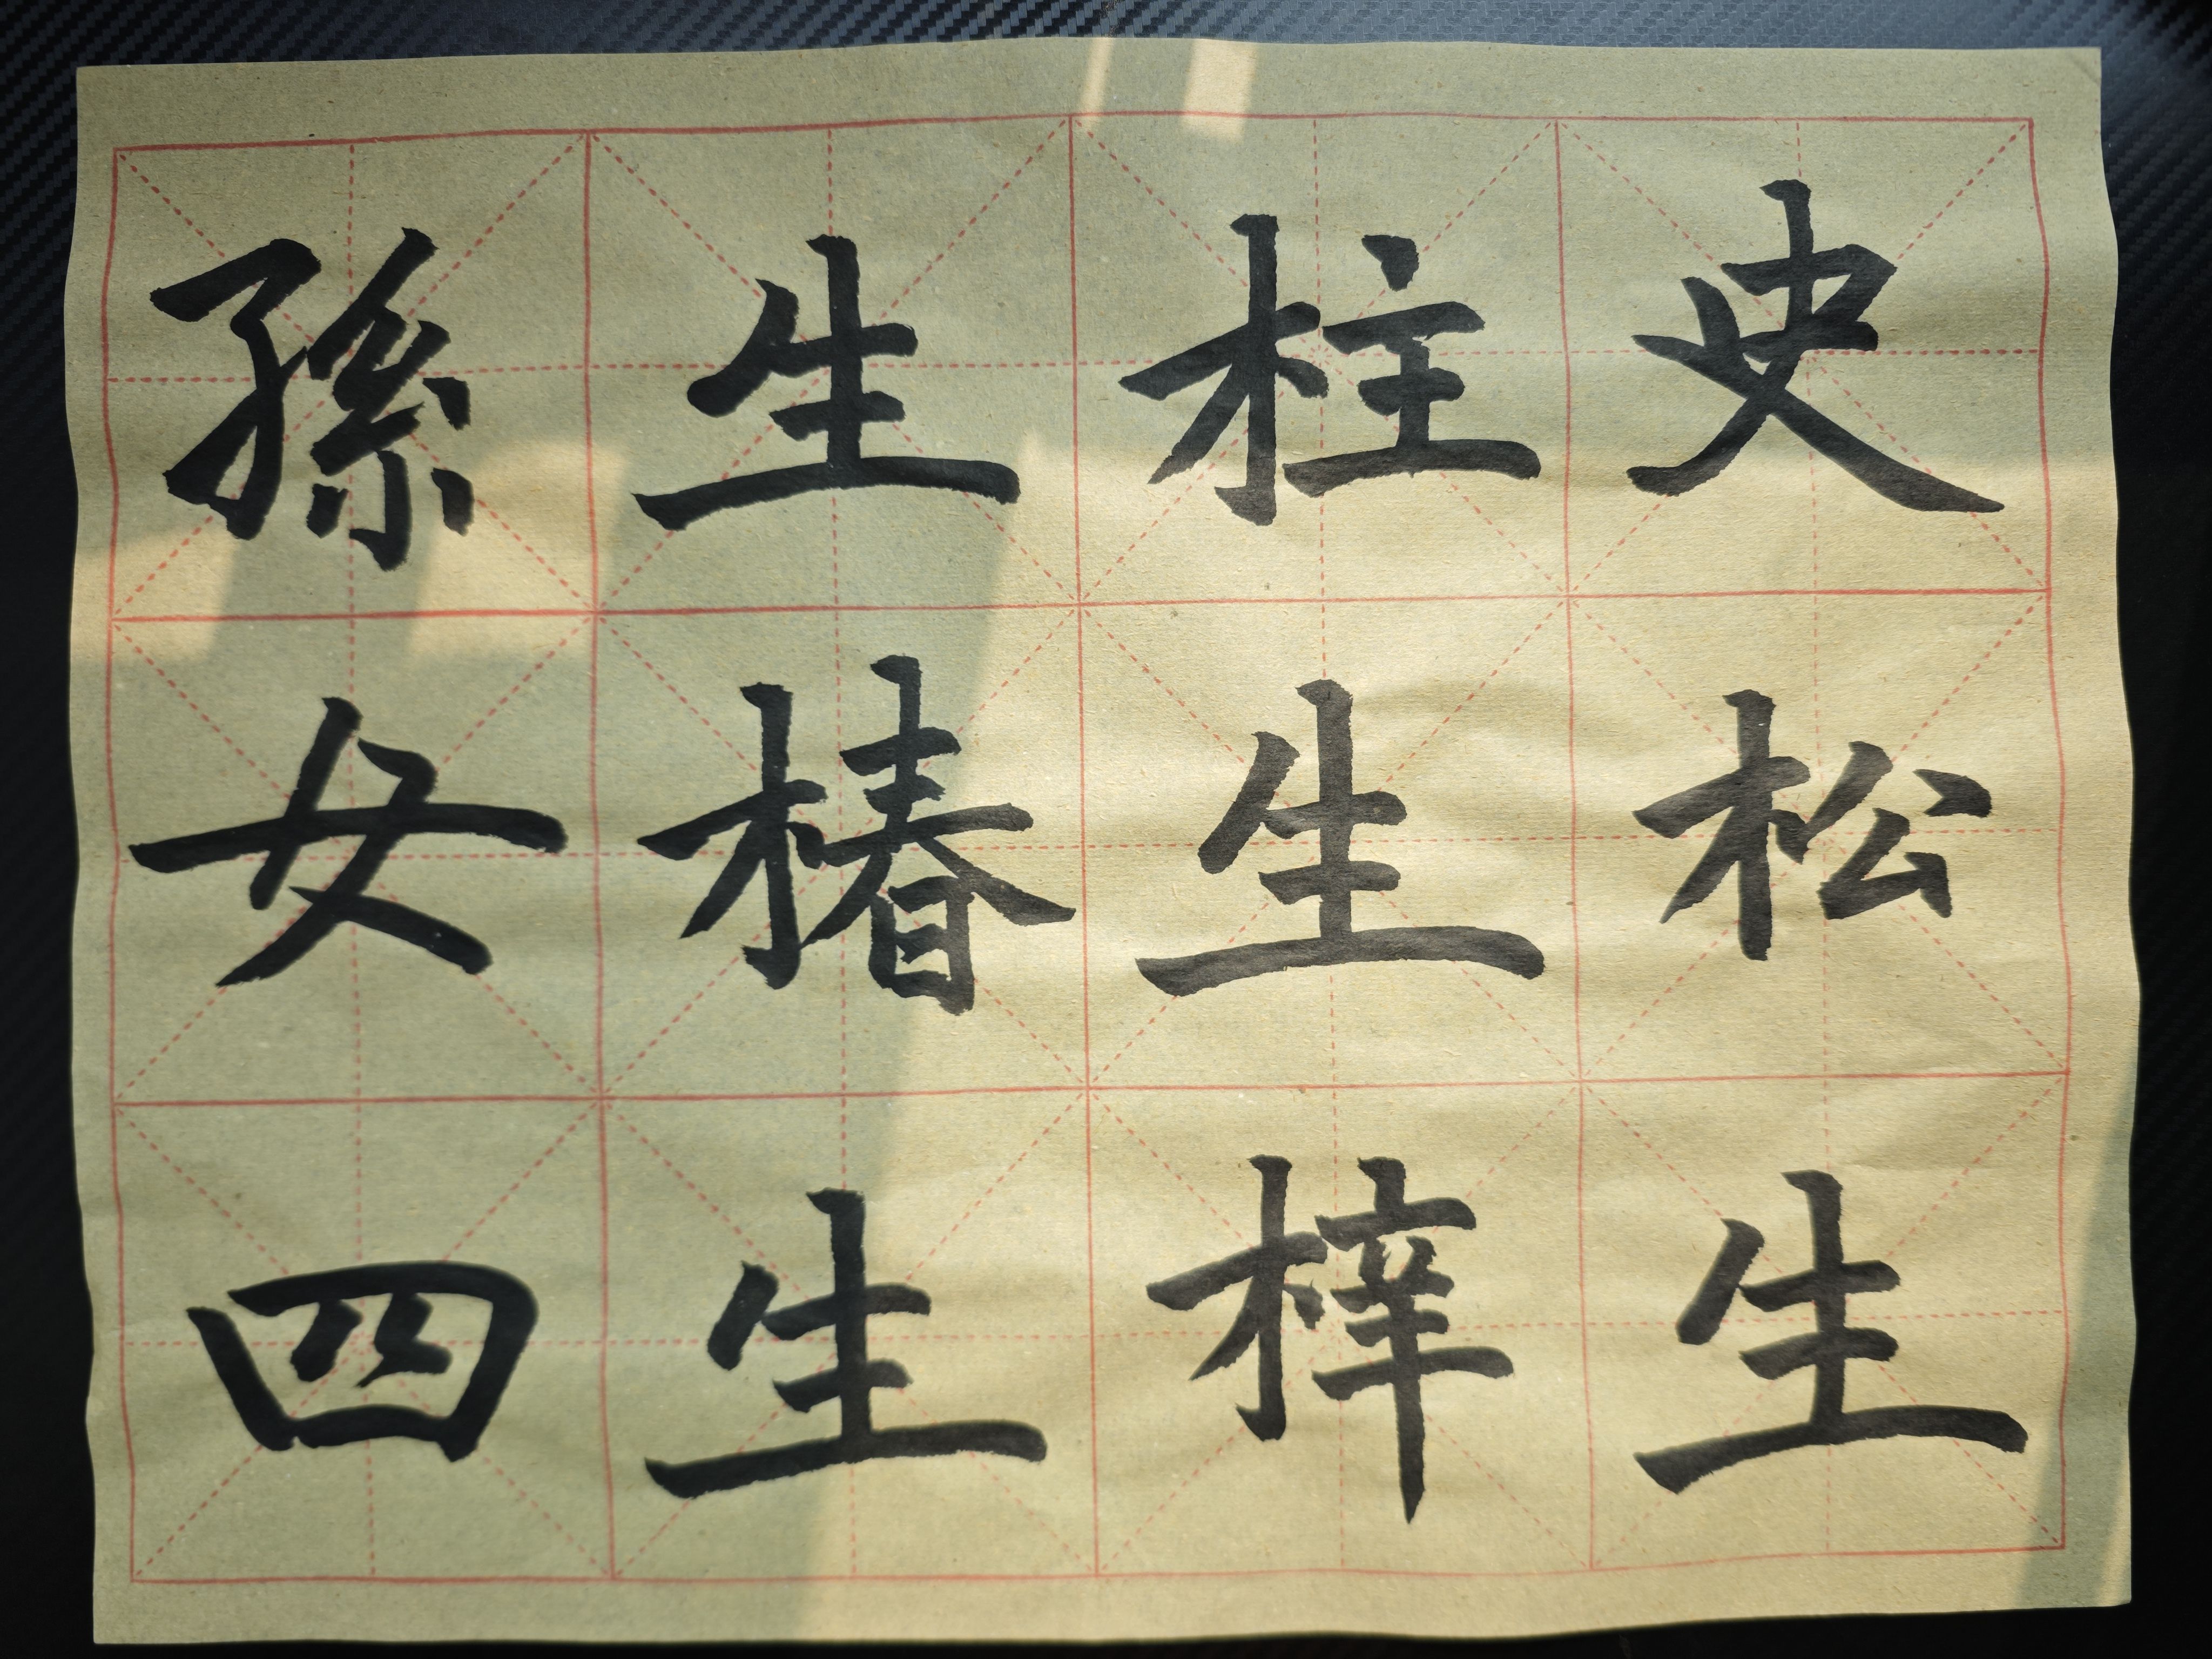 史松生
柱生梓
生椿生
孫女四